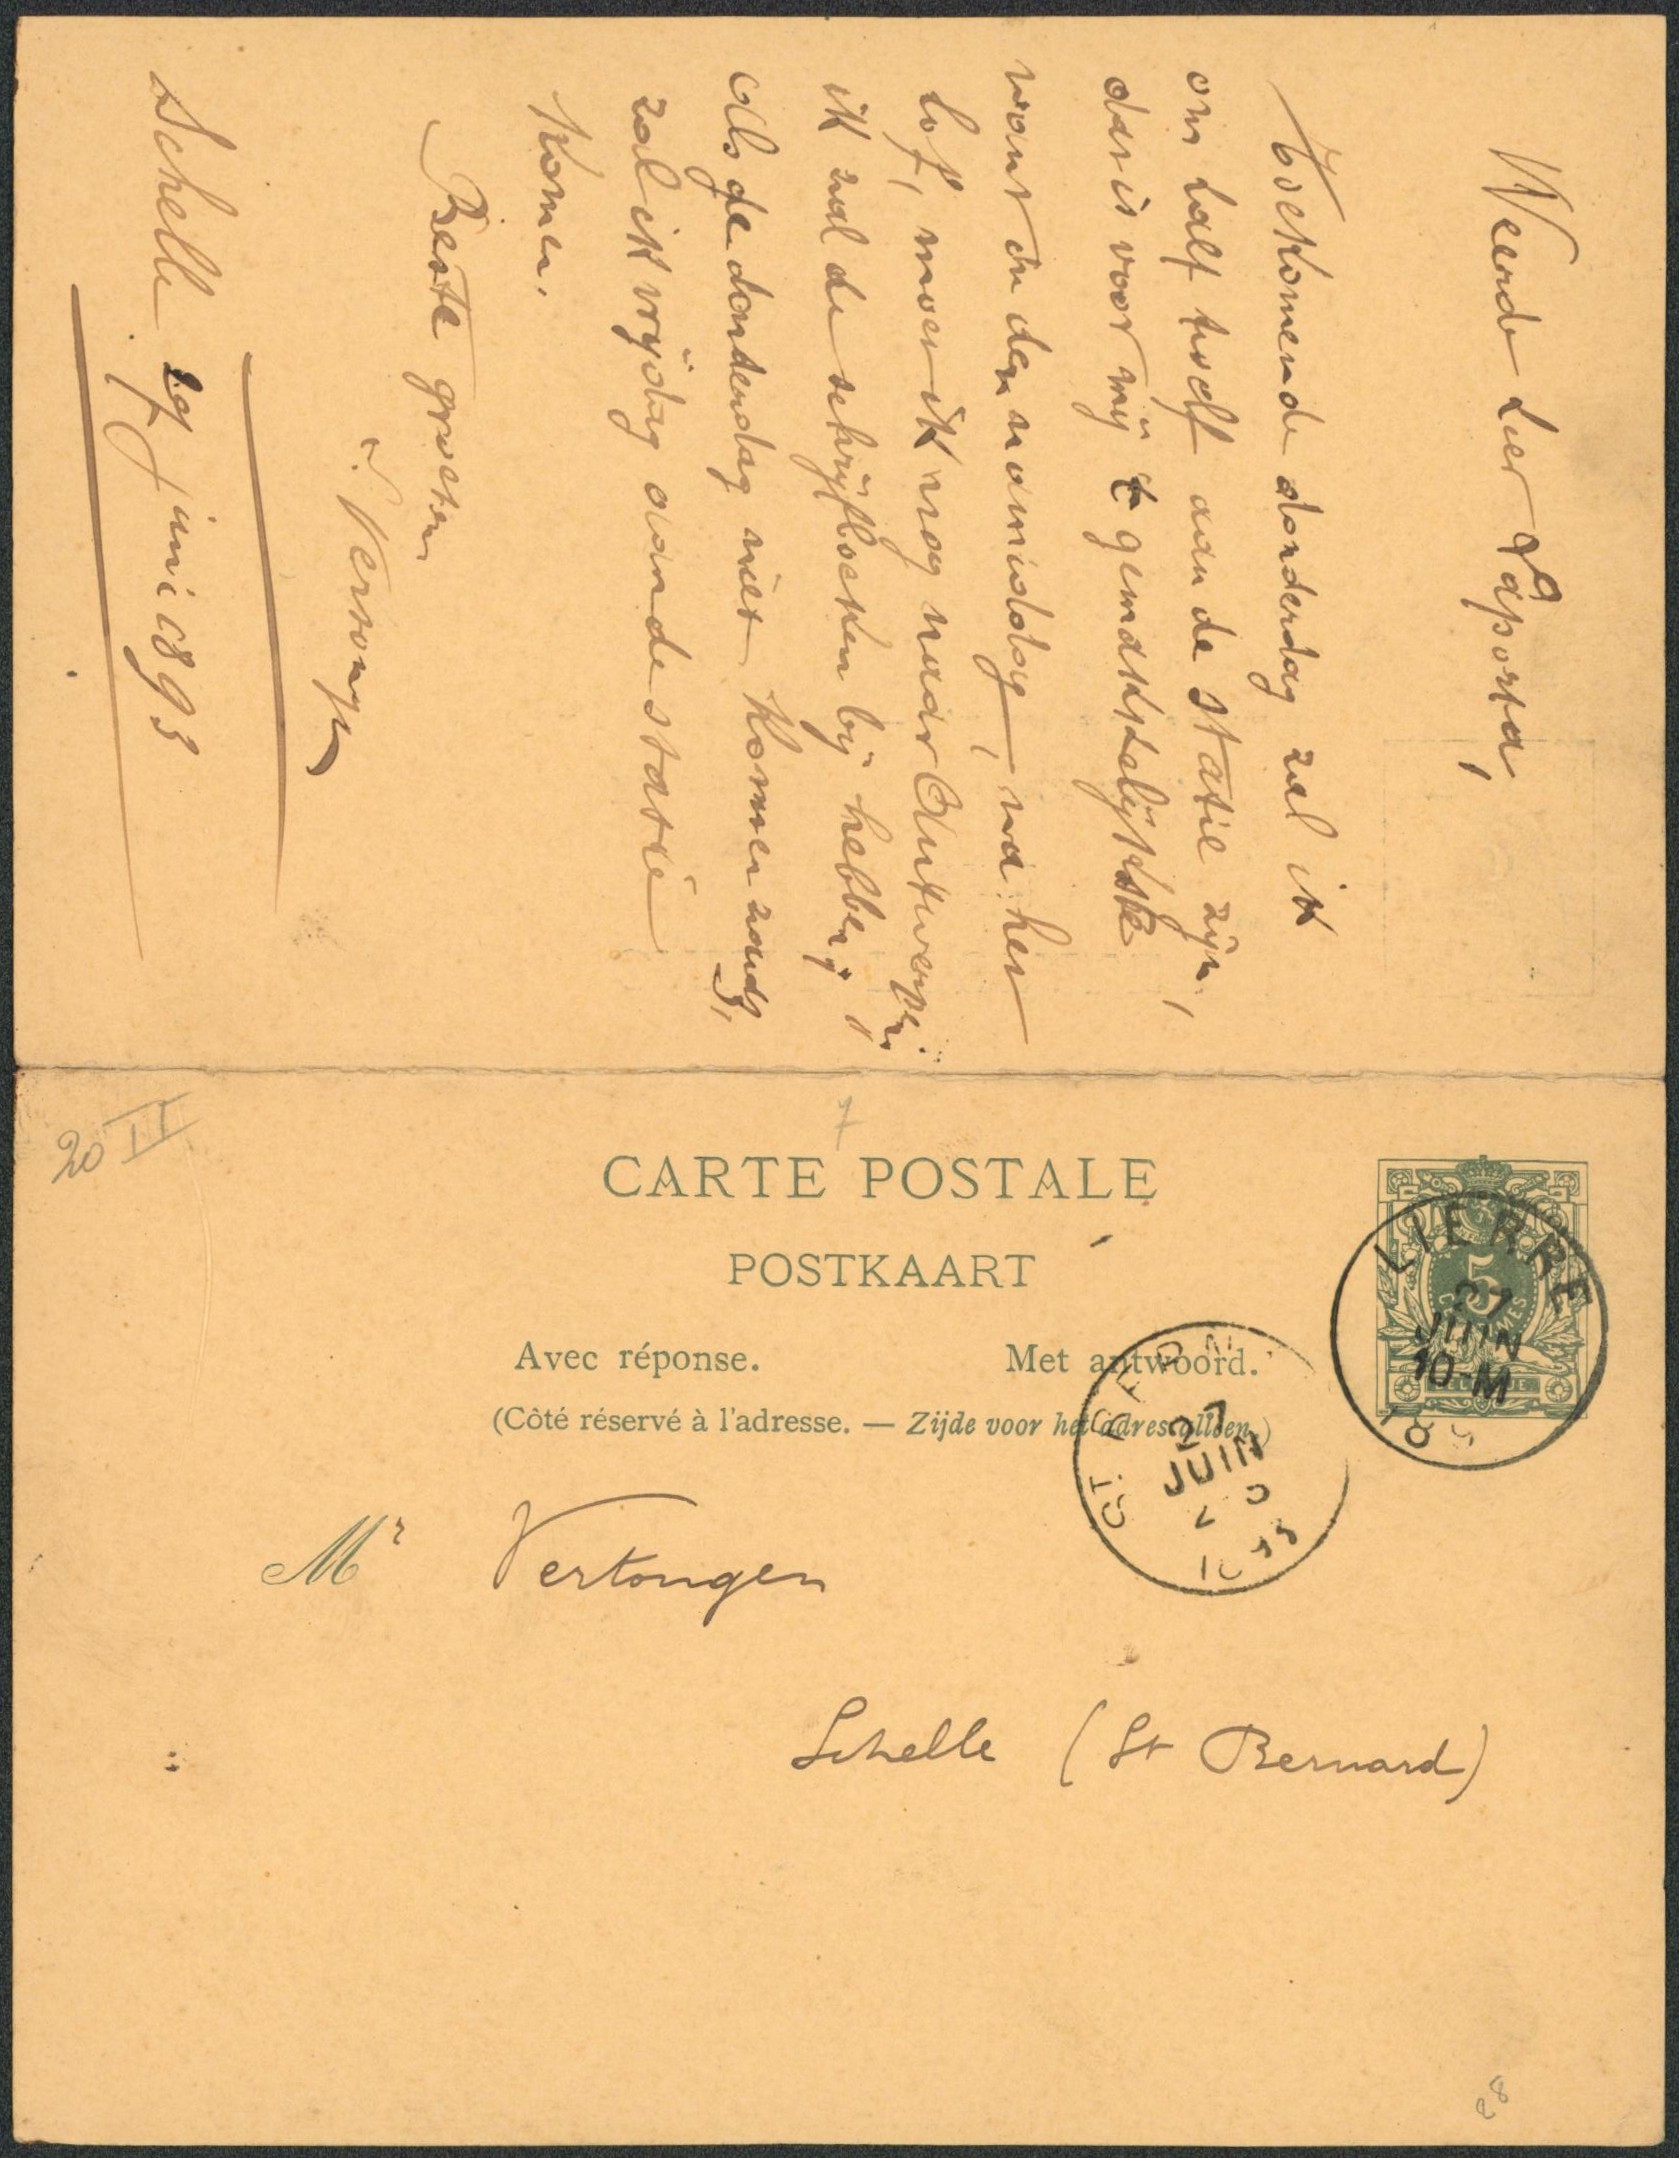 Weerde Heer Laporta,
Toekomende donderdag zal ik
om half twelf aan de statie zijn,
dan is voor mij 't gemakkelijkste
want in den namiddag, na het
lof, moet ik nog naar Antwerpen.
ik zal de schrijfboeken bij hebben;
Als ge donderdag niet komen zoudt,
zal ik vrijdag aan de statie
komen.
Beste groeten
Vertongen
Schelle 27 juni 1893
20 II
7
CARTE POSTALE
POSTKAART
Avec réponse. Met antwoord.
(Côté réservé à l'adresse. — Zijde voor het adres alleen.)
5
CENTIMES
BELGIQUE
LIERRE
27
JUIN
10-M
27
JUIN
Mr Vertongen
Schelle (St Bernard)